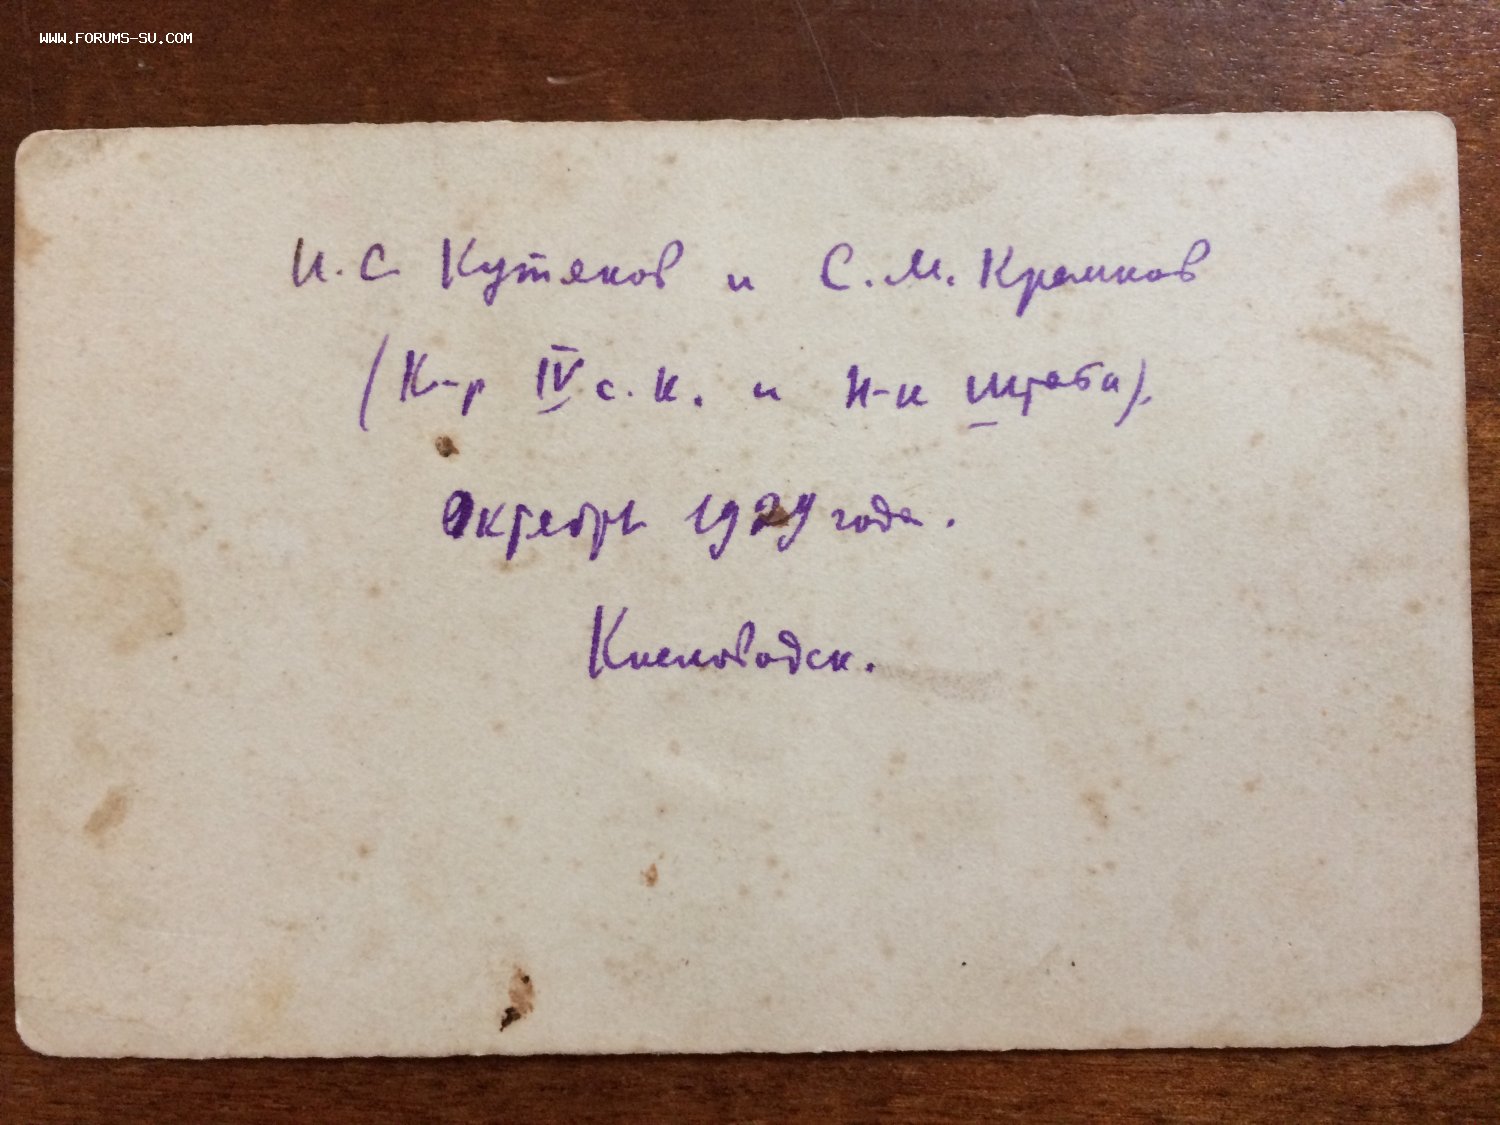 WWW.FORUMS-SU.COM
И. С. Кутяков и С. М. Кремков
(К-р IV с. к. и Н-к штаба).
Октябрь 1929 года.
Кисловодск.